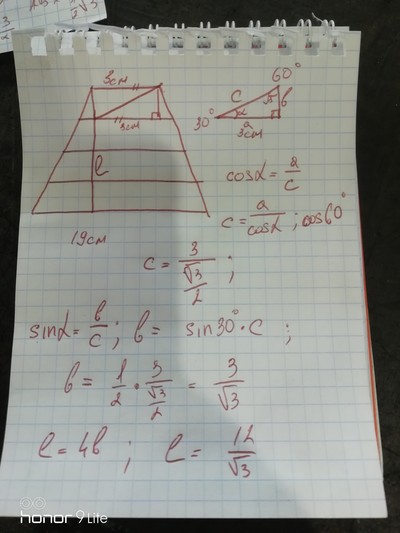 3см
60°
c
30°
α
b
a
3см
3см
l
19см
cosα = a/c
c = a/cosα ; cos60°
c = 3/(√3/2) ;
sinα = b/c ; b = sin30° · c ;
b = 1/2 · 3/(√3/2) = 3/√3
l = 4b ; l = 12/√3
honor 9 Lite